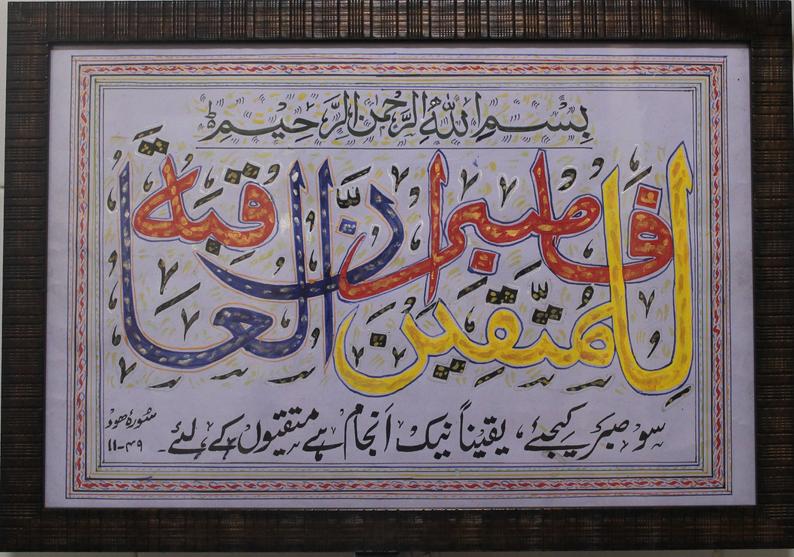 بِسْمِ اللّٰهِ الرَّحْمٰنِ الرَّحِيْمِ
فَاصْبِرْ اِنَّ الْعَاقِبَةَ
لِلْمُتَّقِيْنَ
سو صبر کیجئے، یقیناً نیک اَنجام ہے متقیوں کے لئے۔
سُورۂ ھود
۱۱-۴۹